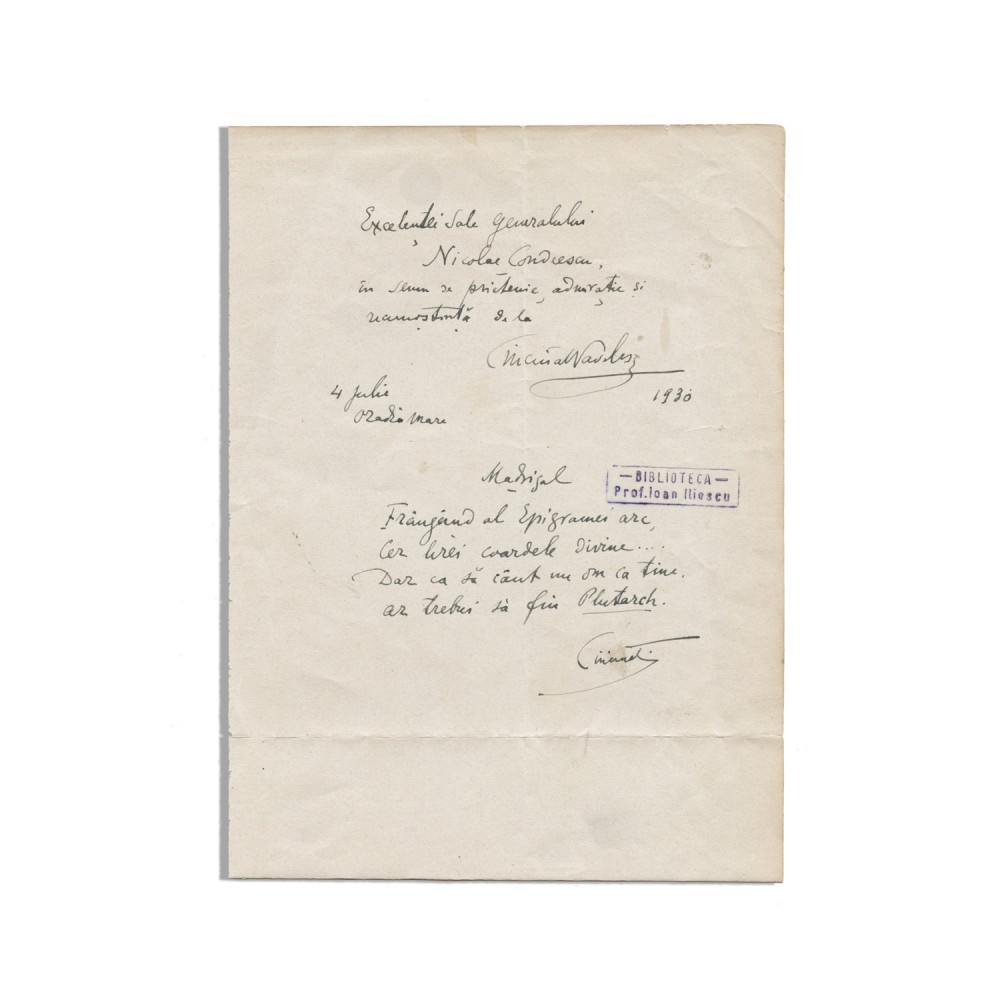 Excelenței Sale Generalului
Nicolae Condeescu,
în semn de prietenie, admirație și
recunoștință de la
Cincinat Pavelescu
4 Julie 1930
Oradia Mare
Madrigal
— BIBLIOTECA —
Prof. Ioan Iliescu
Frângând al Epigramei arc,
Cer lirei coardele divine....
Dar ca să cânt un om ca tine.
ar trebui să fiu Plutarch.
Cincinat